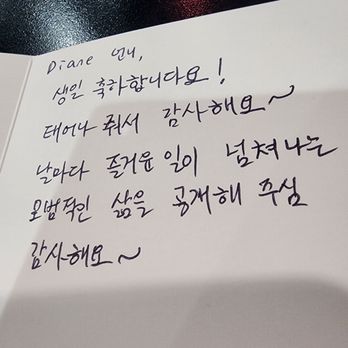 Diane 언니,
생일 축하합니다요!
태어나 줘서 감사해요~
날마다 즐거운 일이 넘쳐나는
모범적인 삶을 공개해 주심
감사해요~